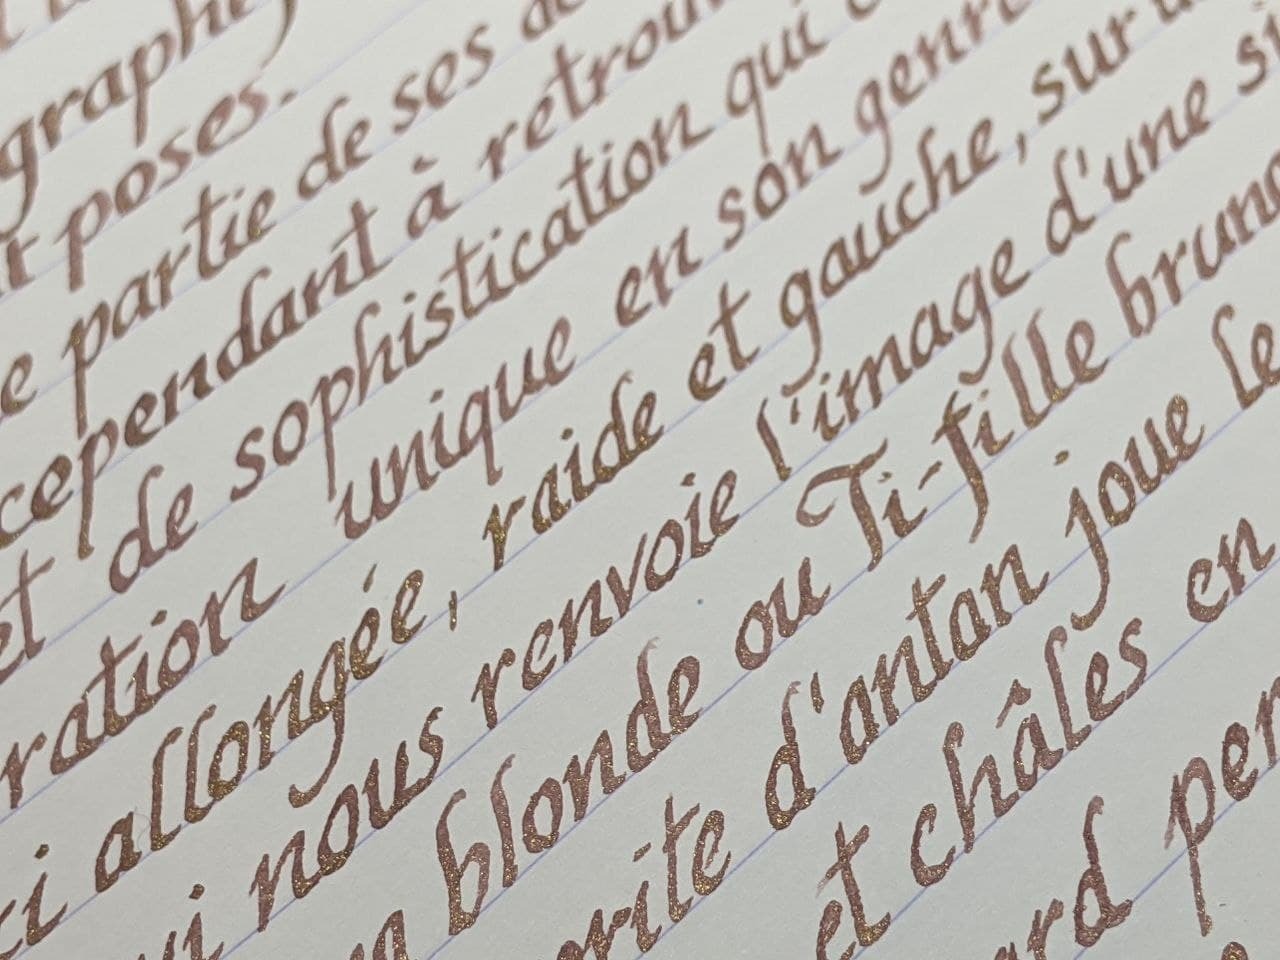 graphe
t poses.
e partie de ses
cependant à retrouv
et de sophistication qui
ration unique en son genre
ci allongée, raide et gauche, sur
ui nous renvoie l'image d'une si
n blonde ou Ti-fille brune
orite d'antan joue le
et châles en
ard per